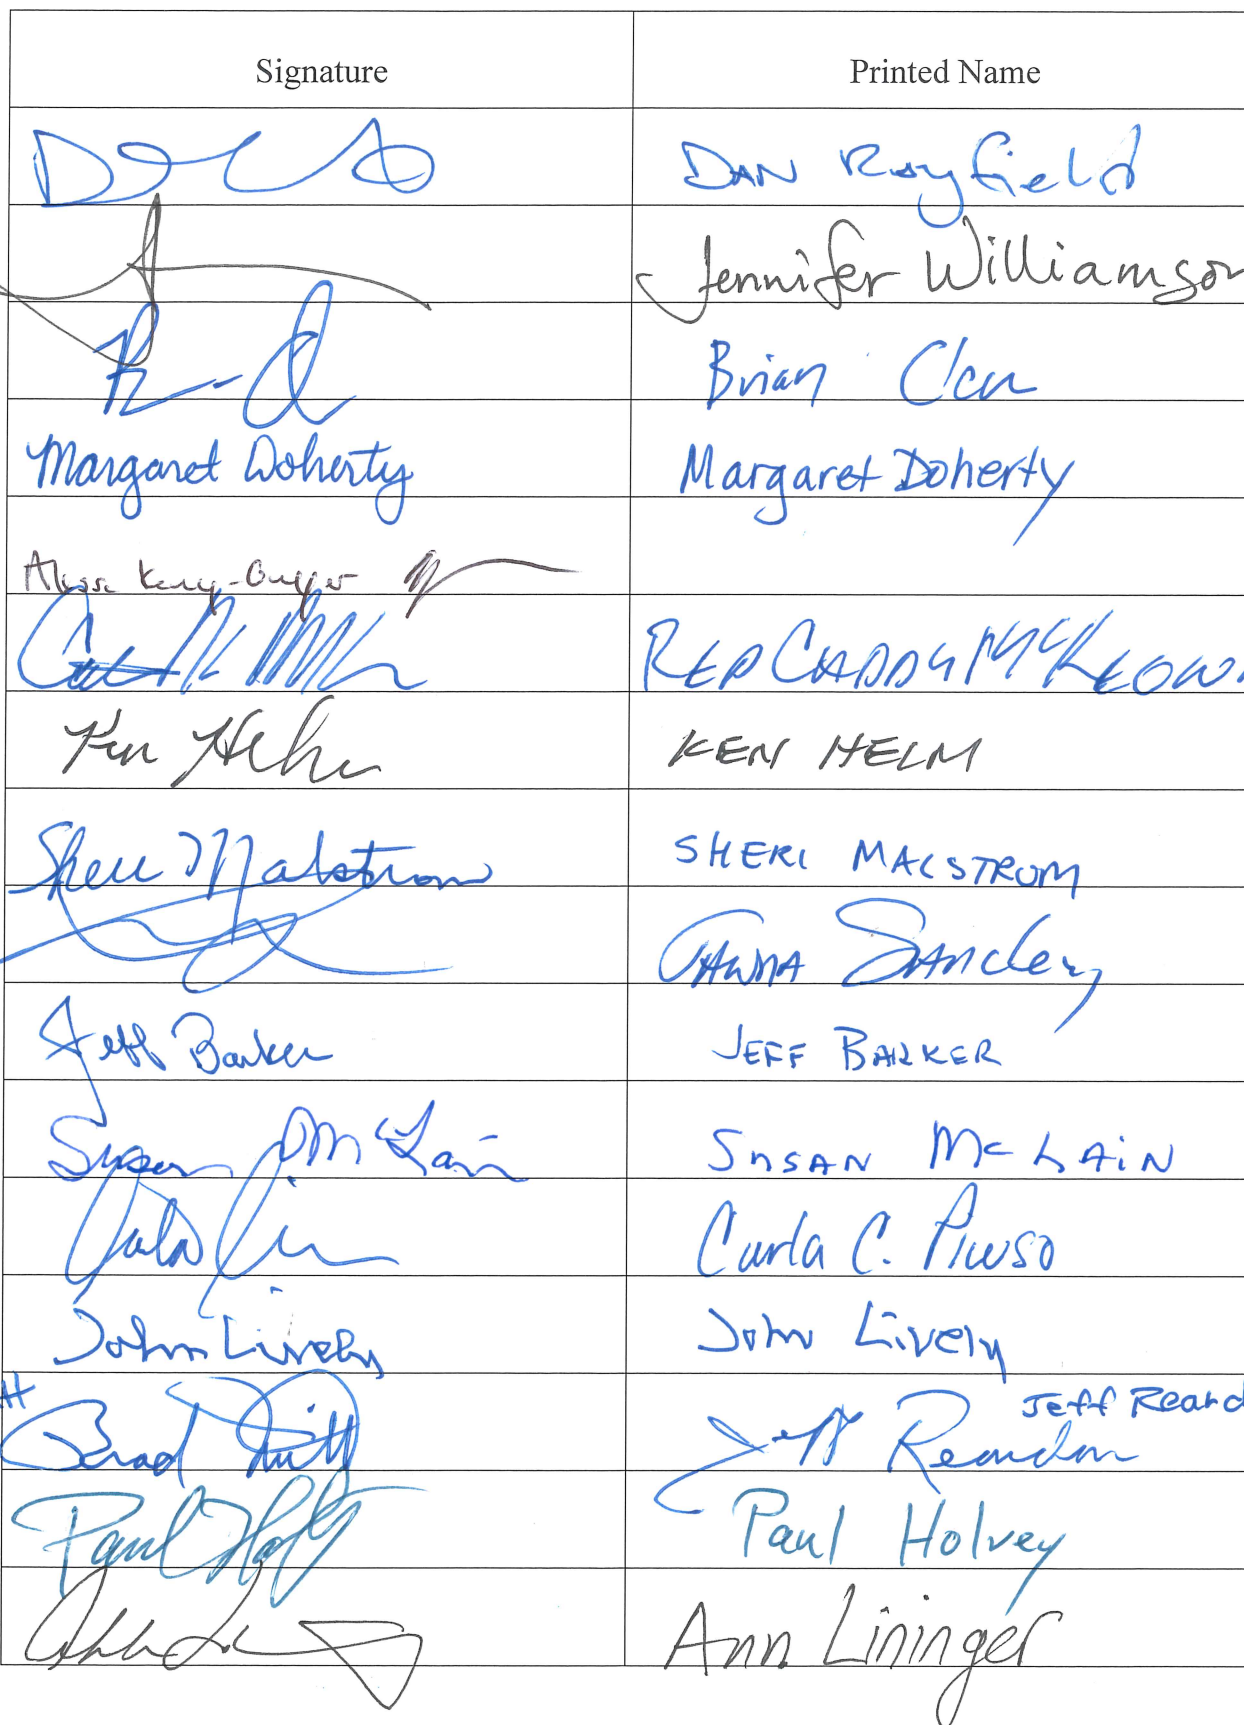 Signature Printed Name
DAN Rayfield
Jennifer Williamson
Brian Clem
Margaret Doherty Margaret Doherty
Alissa Keny-Guyer
REP CADDY MCKEOWN
Ken Helm KEN HELM
Sheri Malstrom SHERI MALSTROM
TAWNA SANchez
Jeff Barker JEFF BARKER
Susan McLain SUSAN McLAiN
Carla C. Piluso
John Lively John Lively
Brad Witt Jeff Reardon Jeff Reard
Paul Holvey Paul Holvey
Ann Lininger